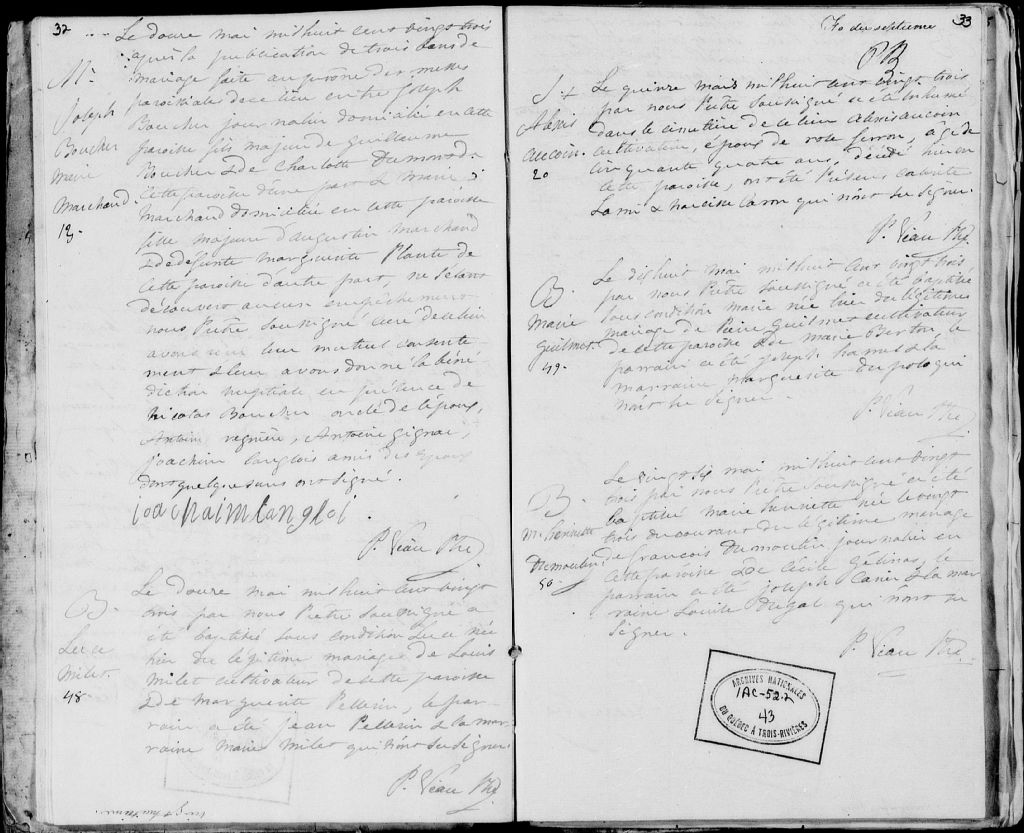 32
Le douze mai mil huit cent vingt trois
après la publication de trois bans de
mariage faite au prône des messes
paroissiales de ce lieu entre Joseph
Boucher journalier domicilié en cette
paroisse fils majeur de Guillaume
Boucher & de Charlotte Dumont de
cette paroisse d'une part & Marie
Marchand domiciliée en cette paroisse
fille majeure d'augustin Marchand
& de défunte Marguerite Plante de
cette paroisse d'autre part, ne s'étant
découvert aucun empêchement
nous Prêtre soussigné curé de ce lieu
avons reçu leur mutuel consente
ment & leur avons donné la béné
diction nuptiale en présence de
Nicolas Boucher oncle de l'époux,
Antoine regnière, Antoine gignac,
joachim Langlois amis des époux
dont quelques uns ont signé.
joachaim langloi
P. Véau Ptre
M.
Joseph
Boucher
Marie
Marchand.
13.
Le douze mai mil huit cent vingt
trois par nous Prêtre soussigné a
été baptisée sous condition Luce née
hier du légitime mariage de Louis
Milet cultivateur de cette paroisse
& de Marguerite Pellerin, le par-
rain a été Jean Pellerin & la mar
raine Marie Milet qui n'ont su signer.
P. Véau Ptre
B.
Luce
Milet
48.
33
Fo. dix septieme
PB
Le quinze mai mil huit cent vingt trois
par nous Prêtre soussigné a été inhumé
dans le cimetière de ce lieu alexis aucoin
cultivateur, époux de rose ferron, agé de
cinquante quatre ans, décédé hier en
cette paroisse, ont été Présens
Lami & narcisse caron qui n'ont su signer.
P. Véau Ptre
S. +
Alexis
aucoin.
20
Le dishuit mai mil huit cent vingt trois,
par nous Prêtre soussigné a été baptisée
sous condition marie née hier du légitime
mariage de Pierre Guilmet cultivateur
de cette paroisse & de marie Berton, le
parrain a été joseph hamel & la
marraine marguerite dupolo qui
n'ont su signer.
P. Véau Ptre
B.
Marie
Guilmet.
49.
Le mai mil huit cent vingt
trois par nous Prêtre soussigné a été
baptisée marie henriette née le vingt
trois du courant du légitime mariage
de francois Dumoulin journalier en
cette paroisse & de Cécile gélinas, le
parrain a été joseph & la mar
raine Louise Dugal qui n'ont su
signer.
P. Véau Ptre
B.
M. henriette
Dumoulin
50.
ARCHIVES NATIONALES
1AC-52.2
43
DU QUÉBEC À TROIS-RIVIÈRES